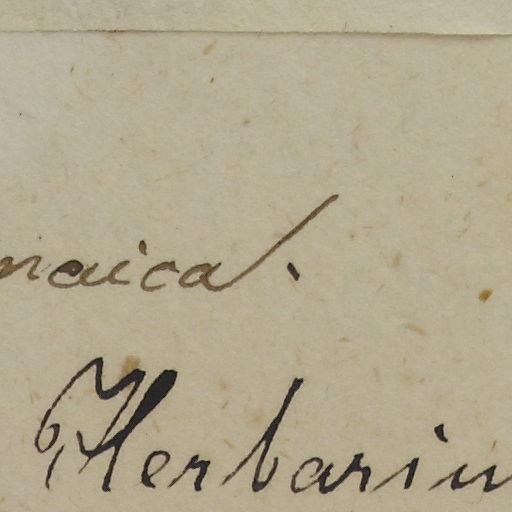 maica.
Herbariu